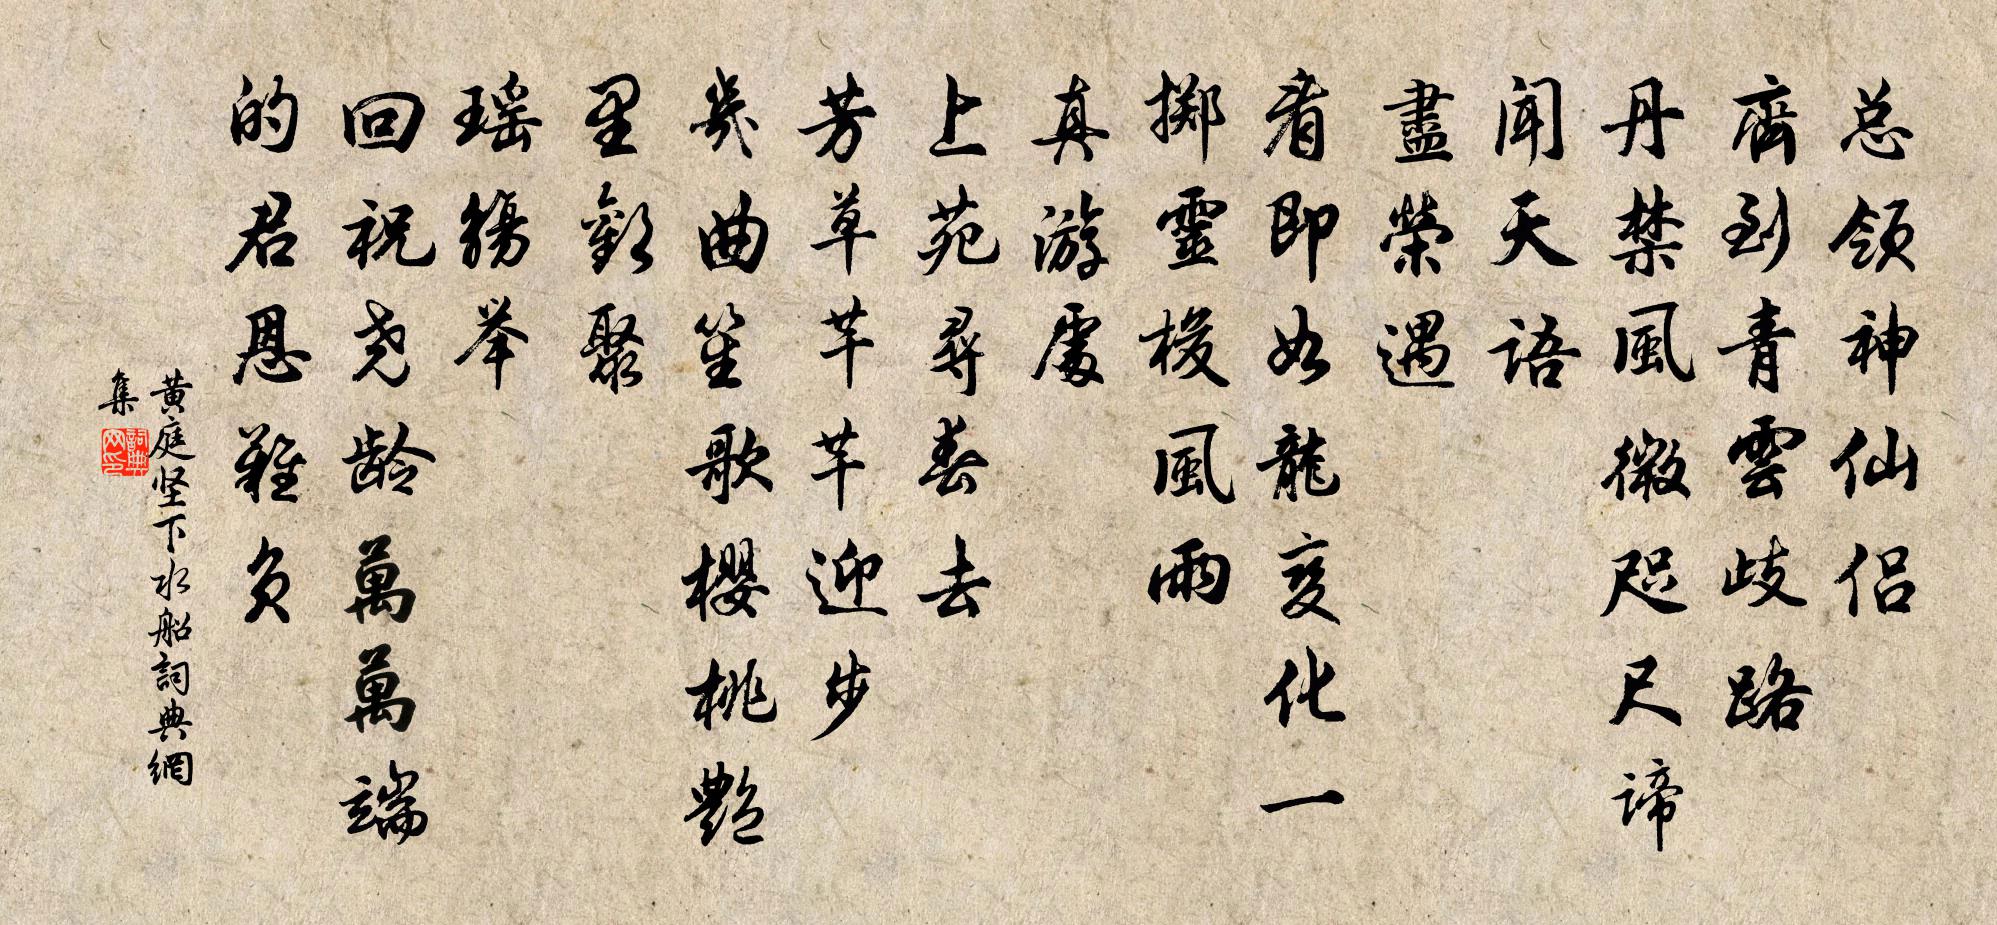 总领神仙侣
齊到青雲歧路
丹禁風微咫尺谛
闻天语
盡榮遇
看即如龍变化一
掷靈梭風雨
真游處
上苑尋春去
芳草芊芊迎步
幾曲笙歌櫻桃艷
里歡聚
瑶觴举
回祝尧龄萬萬端
的君恩難负
黄庭坚下水船詞典網
集
詞典
网印